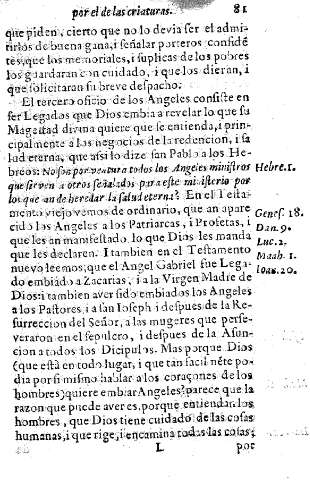 por el de las criaturas. 81
que piden, cierto que no lo devia ser el admi-
tirlos de buena gana, i señalar porteros confidé
tes, que los memoriales, i suplicas de los pobres
los guardaran con cuidado, i que los dieran, i
que solicitaran su breve despacho.
El tercero oficio de los Angeles consiste en
ser Legados que Dios embia a revelar lo que su
Magestad divina quiere que se entienda, i prin-
cipalmente a los negocios de la redencion, i sa
lud eterna, que assi lo dize san Pablo a los He-
breos: No son por ventura todos los Angeles ministros Hebre. 1.
que sirven a otros señalados para este ministerio por
los que an de heredar la salud eterna? En el Testa-
mento viejo vemos de ordinario, que an apare Genes. 18.
cido los Angeles a los Patriarcas, i Profetas, i Dan. 9.
que les an manifestado, lo que Dios les manda Luc. 2.
que les declaren. I tambien en el Testamento Math. 1.
nuevo leemos, que el Angel Gabriel fue Lega- Ioan. 20.
do embiado a Zacarias, i a la Virgen Madre de
Dios: i tambien aver sido embiados los Angeles
a los Pastores, i a san Ioseph i despues de la Re-
surreccion del Señor, a las mugeres que perse-
veraron en el sepulcro, i despues de la Asun-
cion a todos los Dicipulos. Mas porque Dios
(que està en todo lugar, i que tan facilmẽte po
dia por si mismo hablar a los coraçones de los
hombres) quiere embiar Angeles? parece que la
razon que puede aver es, porque entiendan los
hombres, que Dios tiene cuidado de las cosas
humanas, i que rige, i encamina todas las cosas,
L por